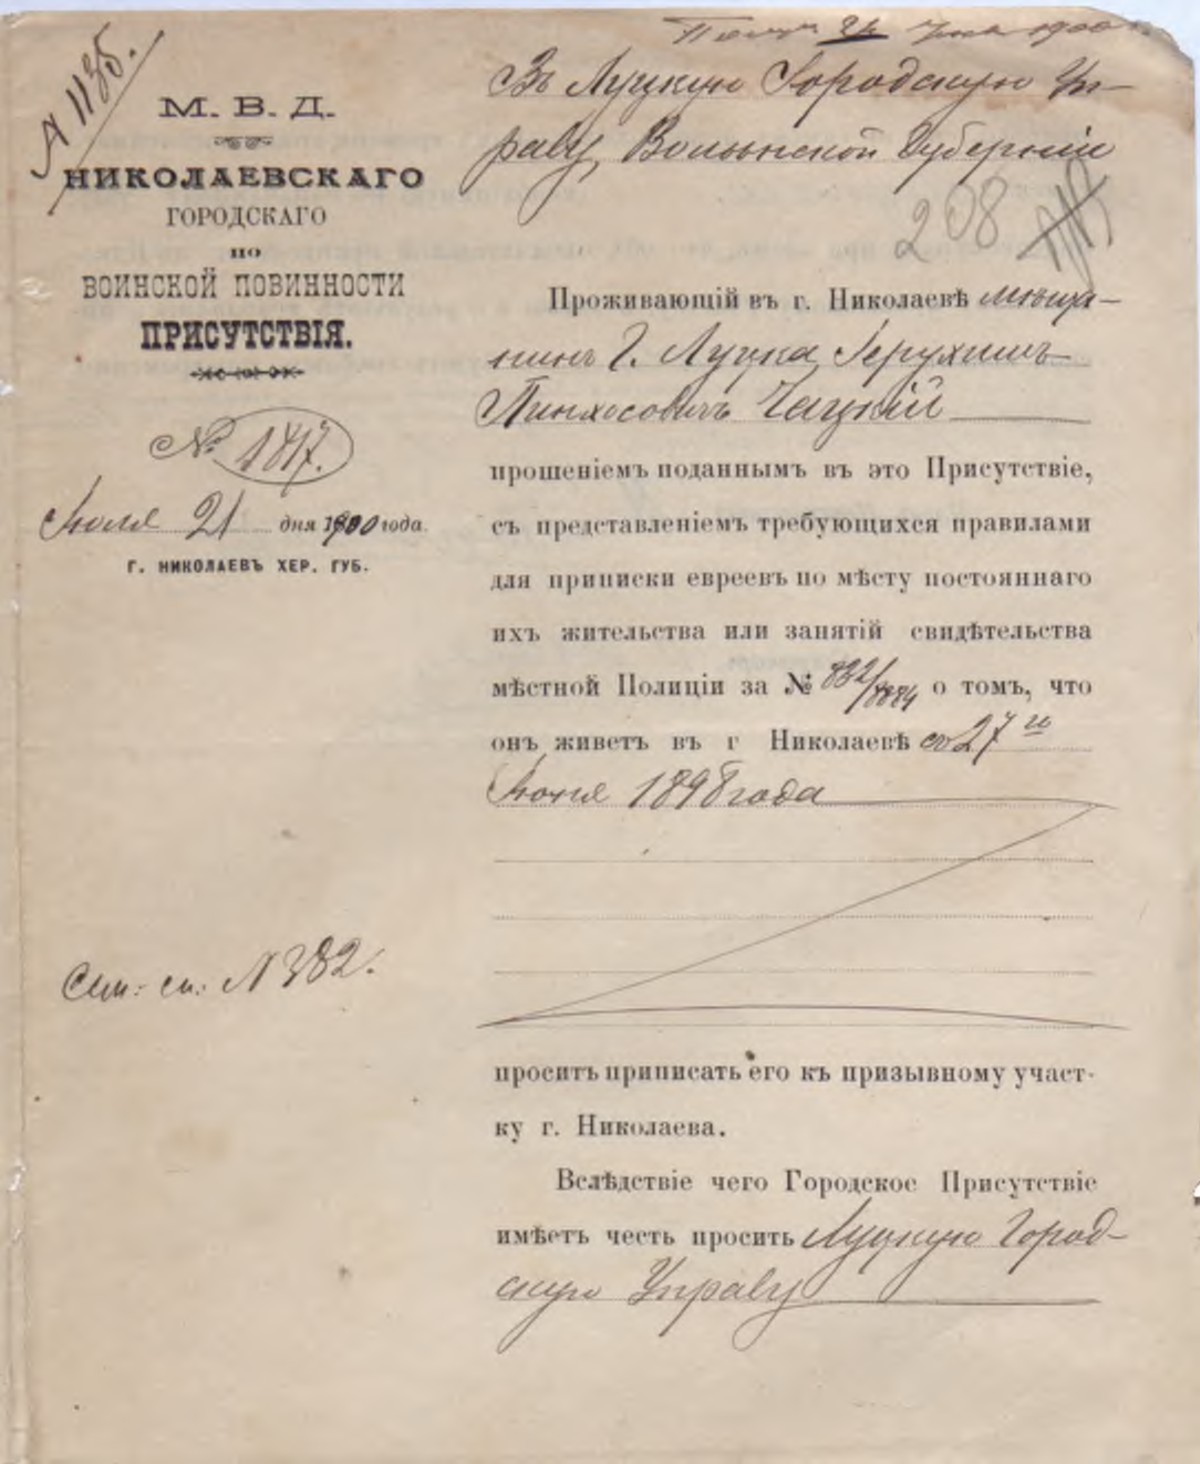 А 1135.
М. В. Д.
НИКОЛАЕВСКАГО
ГОРОДСКАГО
ПО
ВОИНСКОЙ ПОВИННОСТИ
ПРИСУТСТВІЯ.
№ 1817.
Іюля 21 дня 1900 года.
Г. НИКОЛАЕВЪ ХЕР. ГУБ.
Сем: сп: № 382.
1900
Въ Луцкую Городскую Уп-
раву, Волынской Губерніи
208
Проживающій въ г. Николаевѣ мѣща-
нинъ г. Луцка, Герухимъ
Пинхосовичъ Чацкій
прошеніемъ поданнымъ въ это Присутствіе,
съ представленіемъ требующихся правилами
для приписки евреевъ по мѣсту постояннаго
ихъ жительства или занятій свидѣтельства
мѣстной Полиціи за № 832/8884 о томъ, что
онъ живетъ въ г Николаевѣ съ 27го
1898 года
проситъ приписать его къ призывному участ-
ку г. Николаева.
Вслѣдствіе чего Городское Присутствіе
имѣетъ честь просить Луцкую Город-
скую Управу